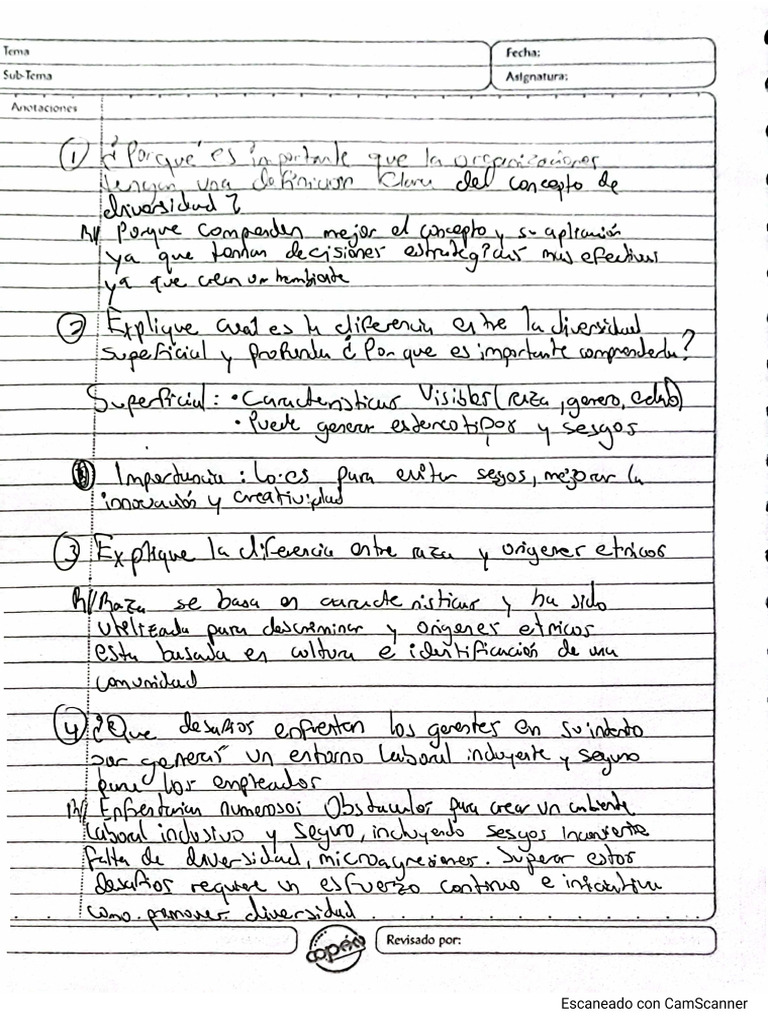 Tema
Fecha:
Sub-Tema
Asignatura:
Anotaciones
① ¿Porque es importante que la organizaciones
tengan una definicion clara del concepto de
diversidad?
R// Porque comprenden mejor el concepto y su aplicación
ya que toman decisiones estrategicas mas efectivas
ya que crean un
② Explique cual es la diferencia entre la diversidad
superficial y profunda ¿Por que es importante comprenderla?
Superficial: • Caracteristicas Visibles (raza, genero, edad)
• Puede generar estereotipos y sesgos
Importancia: Lo es para evitar sesgos, mejorar la
innovación y creatividad
③ Explique la diferencia entre raza y origenes etnicos
R// Raza se basa en caracteristicas y ha sido
utilizada para descriminar y origenes etnicos
esta basada en cultura e identificación de una
comunidad
④ ¿Que desafios enfrentan los gerentes en su intento
por generar un entorno laboral incluyente y seguro
para los empleados
R// Enfrentarian numerosos Obstaculos para crear un ambiente
laboral inclusivo y seguro, incluyendo sesgos
falta de diversidad, microagresiones. Superar estos
desafios requiere un esfuerzo continuo e iniciativa
como promover diversidad
copán
Revisado por:
Escaneado con CamScanner